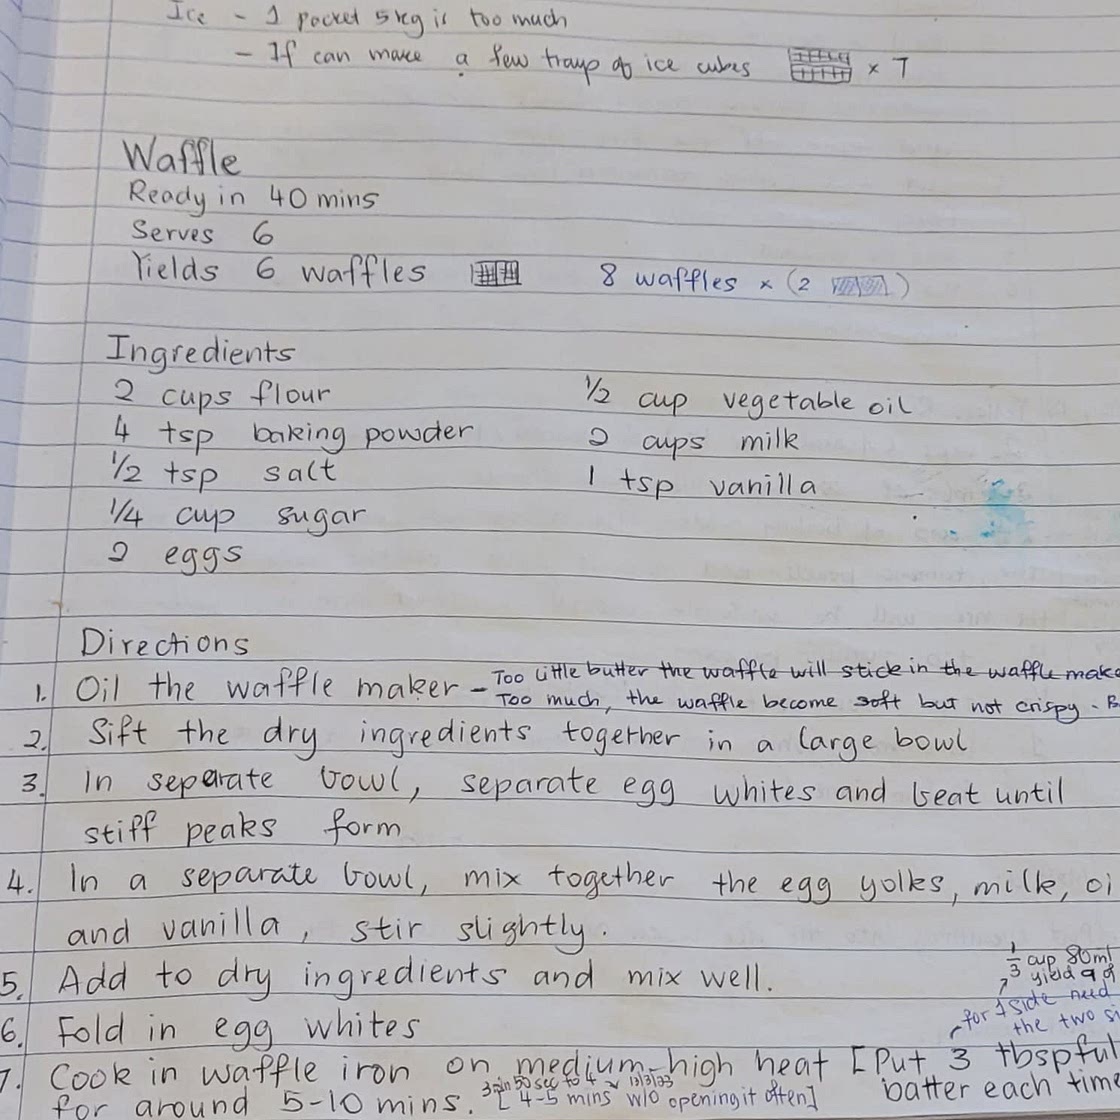 Ice - 1 packet 5kg is too much
- If can make a few trays of ice cubes × 7
Waffle
Ready in 40 mins
Serves 6
Yields 6 waffles 8 waffles × (2 )
Ingredients
2 cups flour ½ cup vegetable oil
4 tsp baking powder 2 cups milk
½ tsp salt 1 tsp vanilla
¼ cup sugar
2 eggs
Directions
1. Oil the waffle maker - Too little butter the waffle will stick in the waffle make
Too much, the waffle become soft but not crispy.
2. Sift the dry ingredients together in a large bowl
3. In separate bowl, separate egg whites and beat until
stiff peaks form
4. In a separate bowl, mix together the egg yolks, milk, oi
and vanilla, stir slightly.
⅓ cup 80ml
5. Add to dry ingredients and mix well. yield 9
for 1 side need
6. Fold in egg whites the two si
7. Cook in waffle iron on medium-high heat [Put 3 tbspful
for around 5-10 mins. [4-5 mins w/o opening it often] batter each time